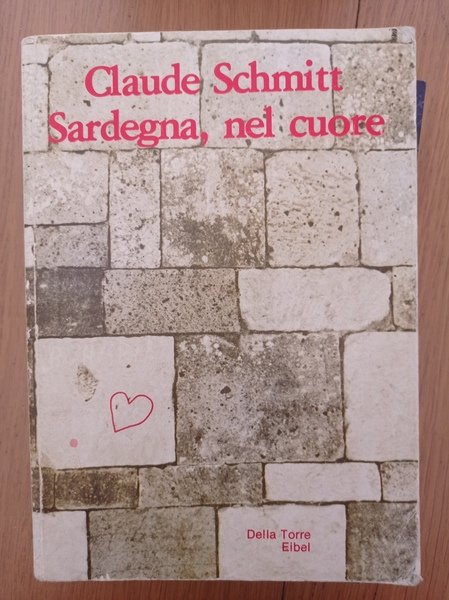 Claude Schmitt
Sardegna, nel cuore
Della Torre
Eibel